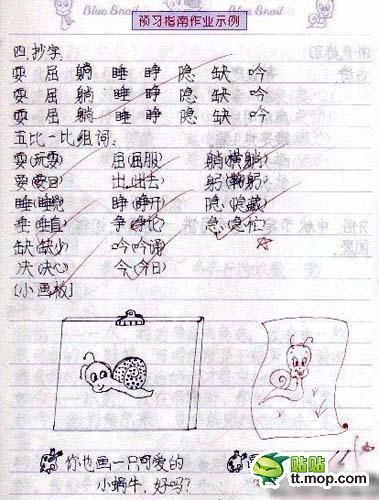 Blue Snail Blue Snail
预习指南作业示例
四.抄字
耍 屈 躺 睡 睁 隐 缺 吟
耍 屈 躺 睡 睁 隐 缺 吟
耍 屈 躺 睡 睁 隐 缺 吟
五.比一比组词:
耍(玩耍) 屈(屈服) 躺(横躺)
出(出去) 躬(鞠躬)
睡(睡觉) 睁(睁开) 隐(隐藏)
垂(垂直) 争(争论) 急(急忙)
缺(缺少) 吟(吟诵)
决(决心) 今(今日)
[小画板]
你也画一只可爱的
小蜗牛,好吗?
贴贴
tt.mop.com